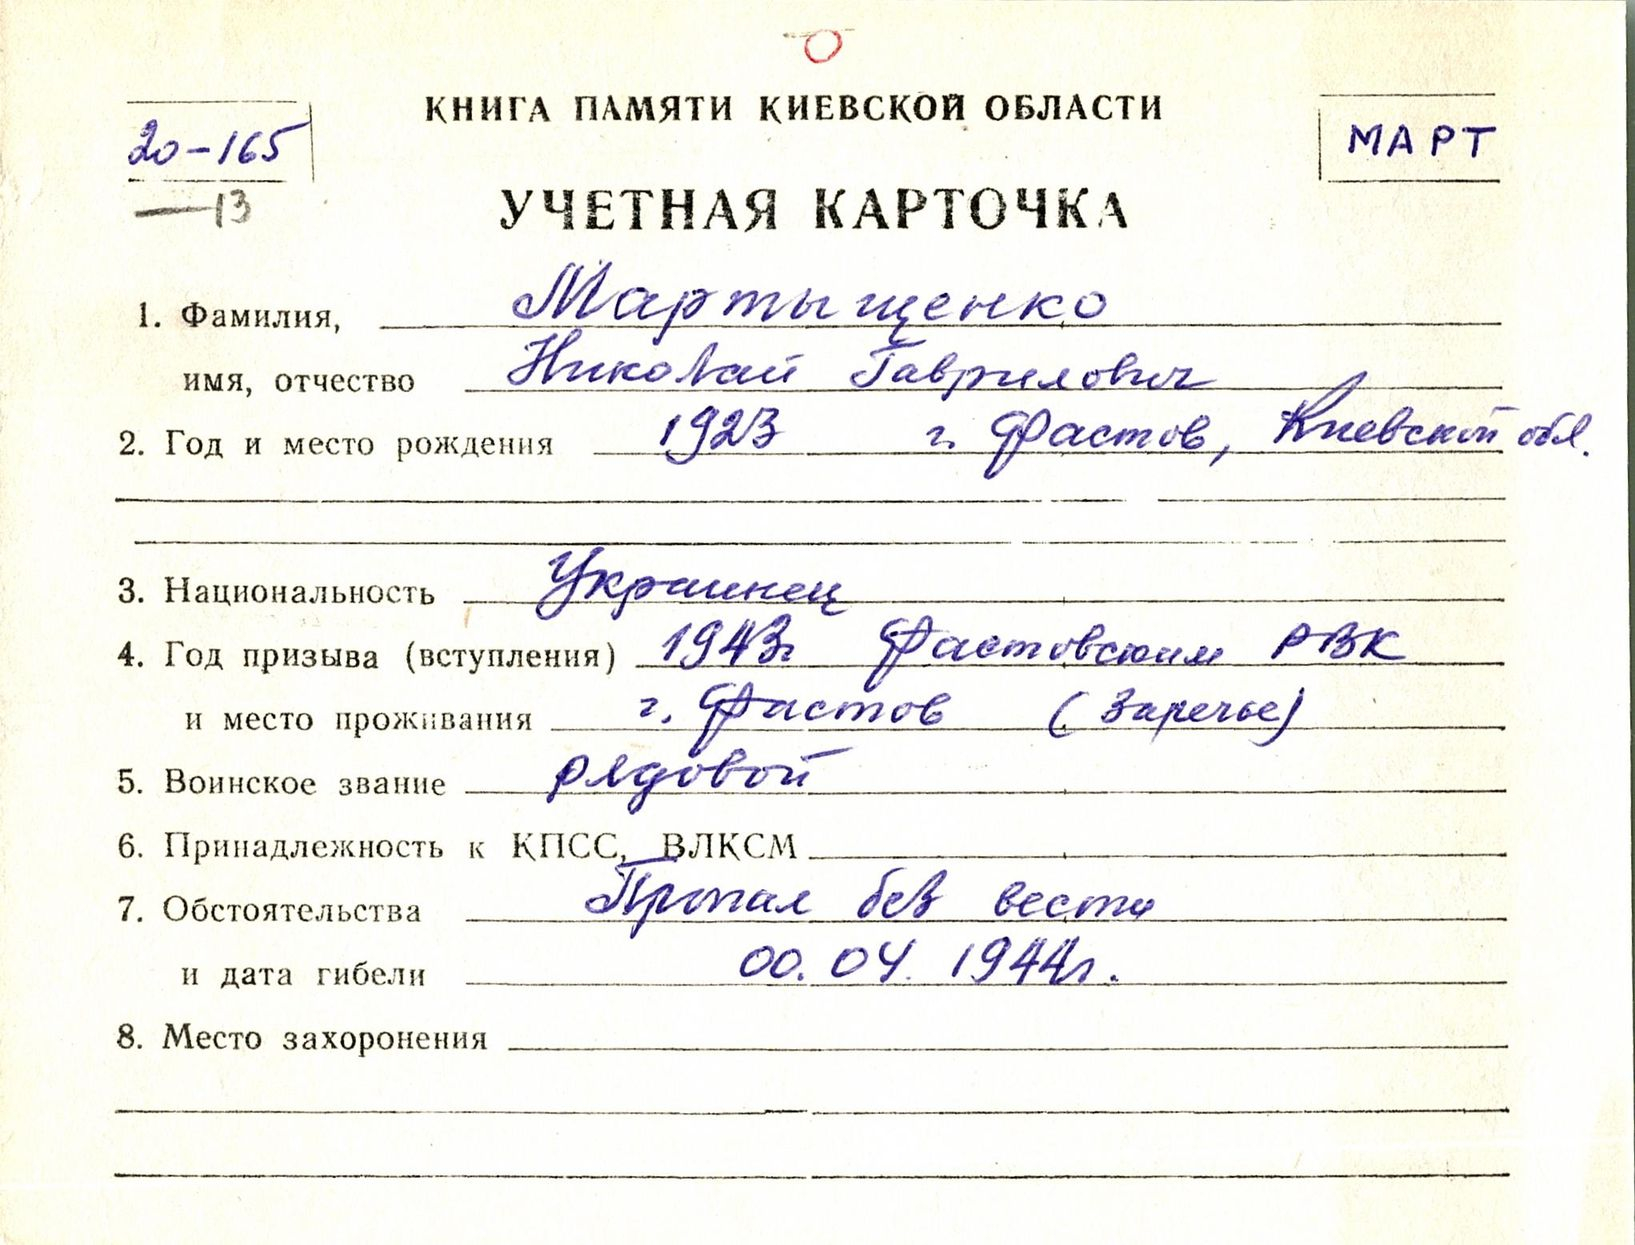 КНИГА ПАМЯТИ КИЕВСКОЙ ОБЛАСТИ
20-165
МАРТ
—13
УЧЕТНАЯ КАРТОЧКА
1. Фамилия, Мартыщенко
имя, отчество Николай Гаврилович
2. Год и место рождения 1923 г. Фастов, Киевской обл.
3. Национальность Украинец
4. Год призыва (вступления) 1943г Фастовским РВК
и место проживания г. Фастов (Заречье)
5. Воинское звание рядовой
6. Принадлежность к КПСС, ВЛКСМ
7. Обстоятельства Пропал без вести
и дата гибели 00.04.1944г.
8. Место захоронения